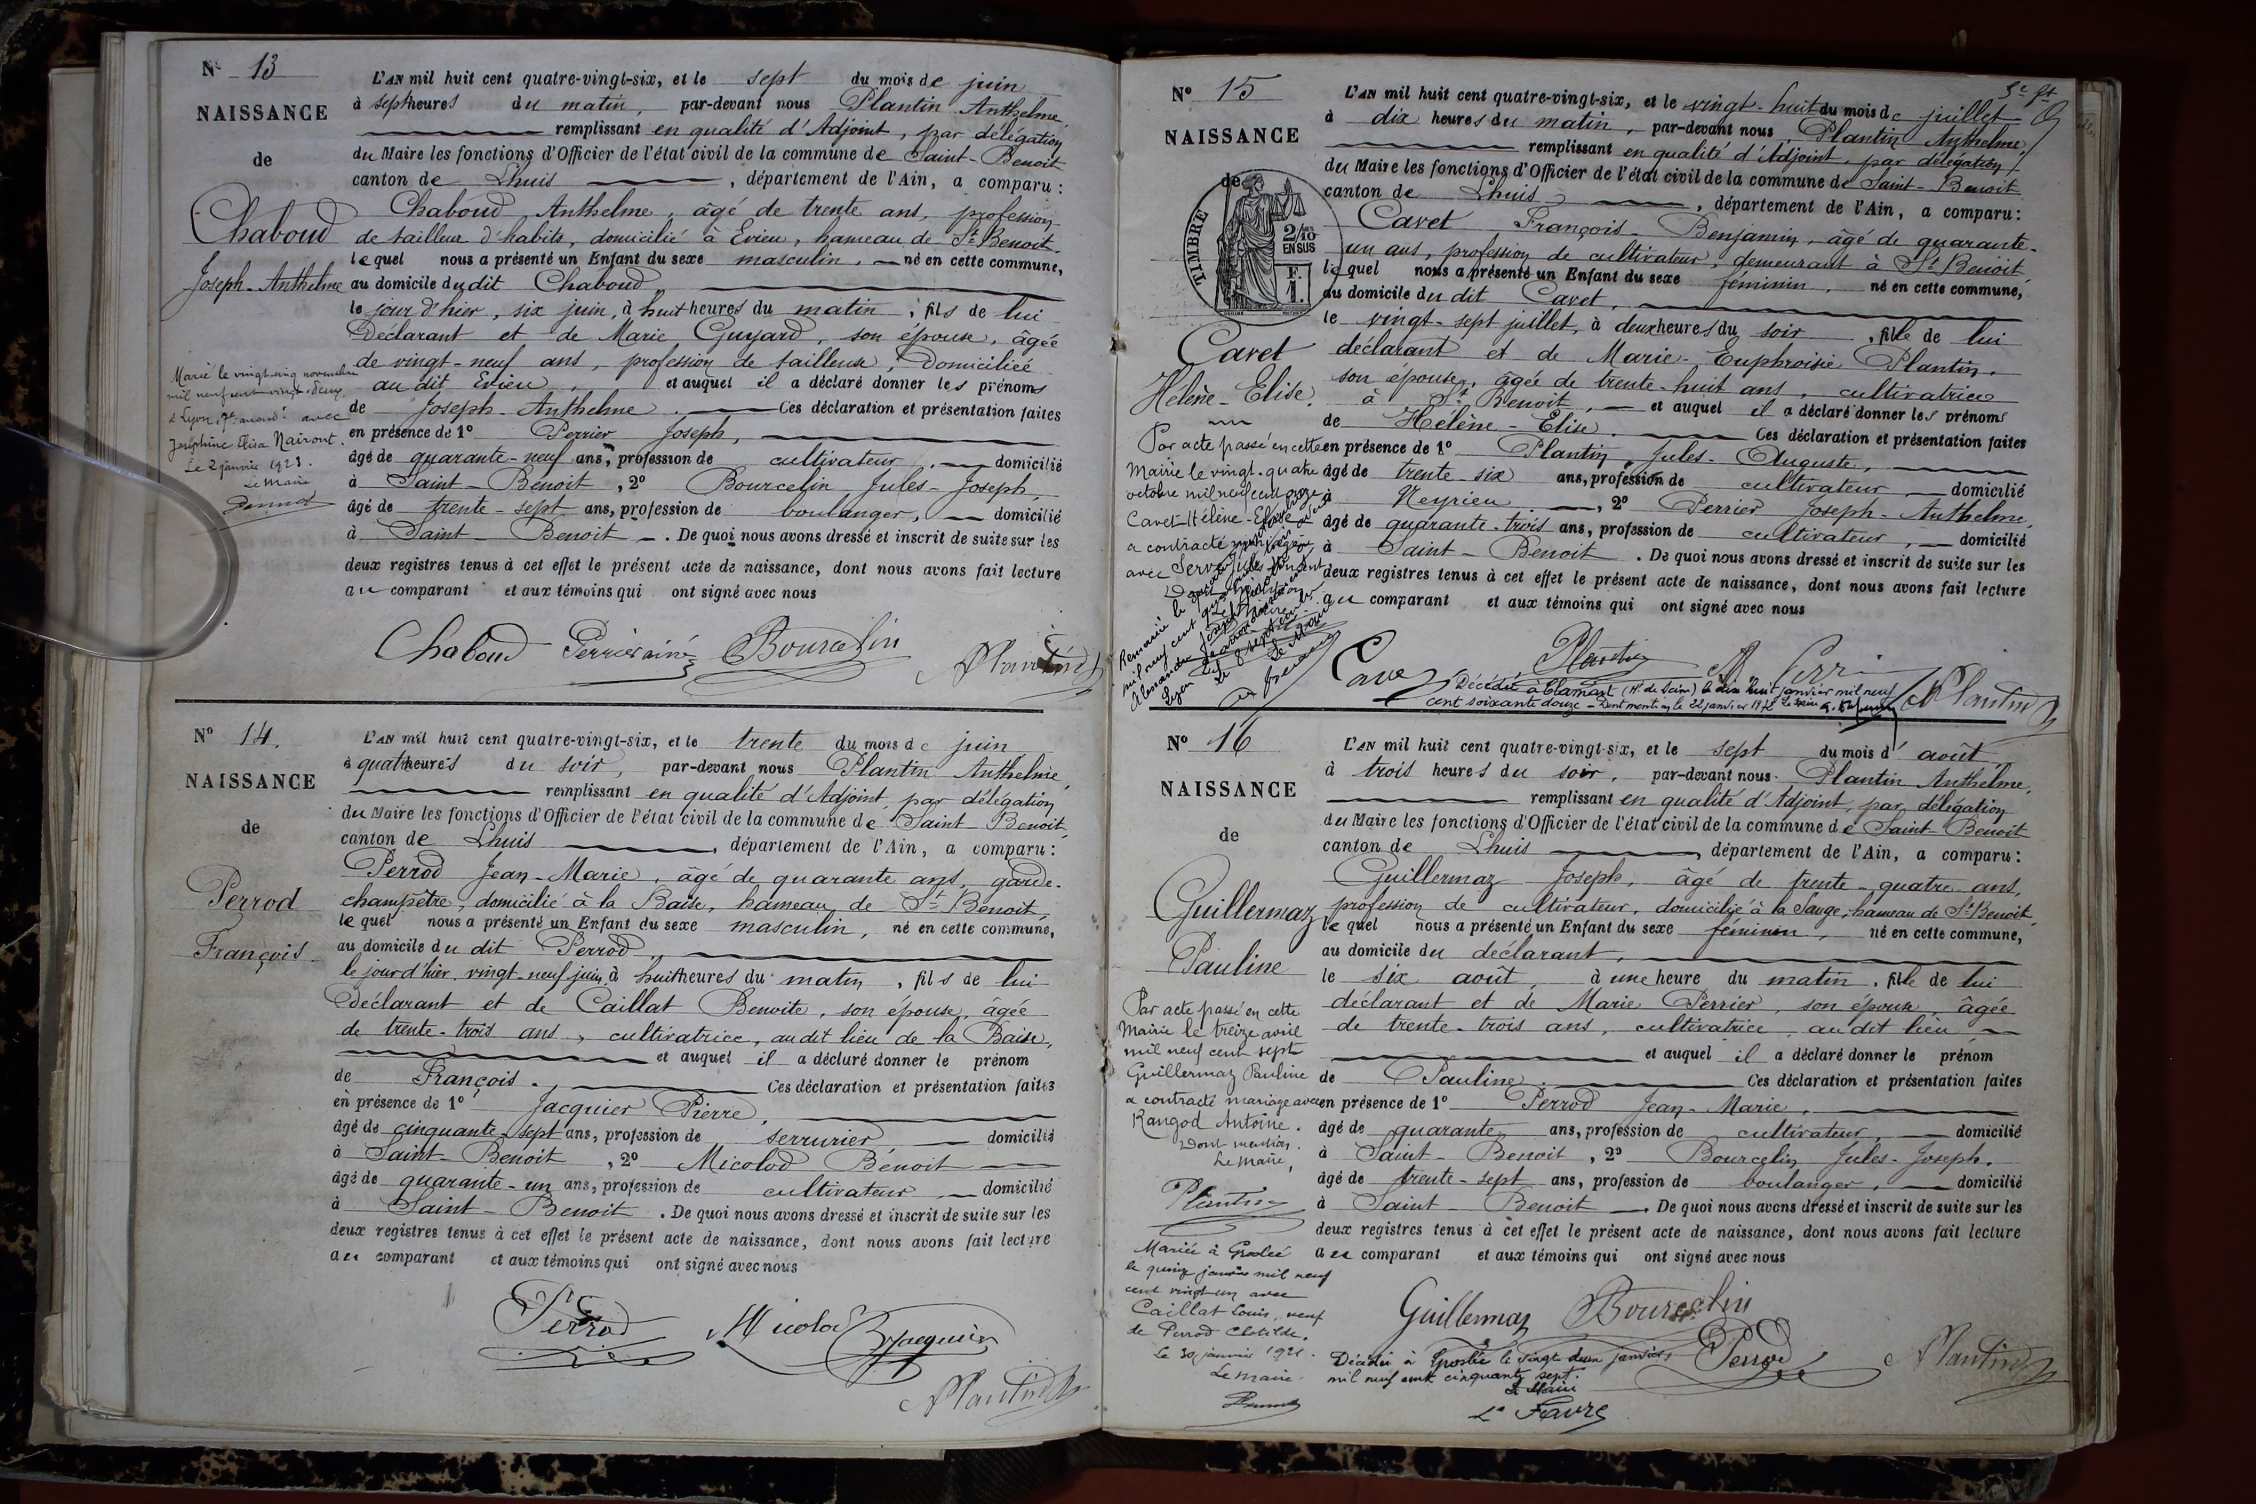 Nº 13
NAISSANCE
de
Chaboud
Joseph-Anthelme
Marié le vingt-cinq novembre
mil neuf cent vingt-deux
à Lyon, 7e arrondt avec
Joséphine Elisa Nairont.
Le 2 janvier 1923.
Le Maire
L'AN mil huit cent quatre-vingt-six, et le sept du mois de juin
à sept heures du matin, par-devant nous Plantin Anthelme,
remplissant en qualité d'Adjoint, par délégation
du Maire les fonctions d'Officier de l'état civil de la commune de Saint-Benoit
canton de Lhuis, département de l'Ain, a comparu :
Chaboud Anthelme, âgé de trente ans, profession
de tailleur d'habits, domicilié à Evieu, hameau de St Benoit
lequel nous a présenté un Enfant du sexe masculin, né en cette commune,
au domicile du dit Chaboud
le jour d'hier, six juin, à huit heures du matin, fils de lui
Déclarant et de Marie Guyard, son épouse, âgée
de vingt-neuf ans, profession de tailleuse, Domiciliée
au dit Evieu, et auquel il a déclaré donner les prénoms
de Joseph-Anthelme. Ces déclaration et présentation faites
en présence de 1º Perrier Joseph,
âgé de quarante-neuf ans, profession de cultivateur, domicilié
à Saint-Benoit, 2º Bourcelin Jules-Joseph,
âgé de trente-sept ans, profession de boulanger, domicilié
à Saint-Benoit. De quoi nous avons dressé et inscrit de suite sur les
deux registres tenus à cet effet le présent acte de naissance, dont nous avons fait lecture
au comparant et aux témoins qui ont signé avec nous
Chaboud Perrier ainé Bourcelin A Plantin
Nº 14.
NAISSANCE
de
Perrod
François.
L'AN mil huit cent quatre-vingt-six, et le trente du mois de juin
à quatre heures du soir, par-devant nous Plantin Anthelme,
remplissant en qualité d'Adjoint, par délégation
du Maire les fonctions d'Officier de l'état civil de la commune de Saint Benoit,
canton de Lhuis, département de l'Ain, a comparu :
Perrod Jean-Marie, âgé de quarante ans, garde-
champêtre, domicilié à la Baise, hameau de St Benoit,
lequel nous a présenté un Enfant du sexe masculin, né en cette commune,
au domicile du dit Perrod
le jour d'hier, vingt-neuf juin, à huit heures du matin, fils de lui
Déclarant et de Caillat Benoite, son épouse, âgée
de trente-trois ans, cultivatrice, au dit lieu de la Baise,
et auquel il a déclaré donner le prénom
de François. Ces déclaration et présentation faites
en présence de 1º Jacquier Pierre,
âgé de cinquante-sept ans, profession de serrurier domicilié
à Saint-Benoit, 2º Micolod Benoit
âgé de quarante-un ans, profession de cultivateur, domicilié
à Saint-Benoit. De quoi nous avons dressé et inscrit de suite sur les
deux registres tenus à cet effet le présent acte de naissance, dont nous avons fait lecture
au comparant et aux témoins qui ont signé avec nous
Perrod Micolod Jacquier
A Plantin
Nº 15
NAISSANCE
de
TIMBRE
2/10
EN SUS
F.
1.
Cavet
Hélène-Elise.
Par acte passé en cette
Mairie le vingt-quatre
octobre mil neuf cent onze
Cavet Hélène-Elise
a contracté mariage
avec
Dont mention
L'AN mil huit cent quatre-vingt-six, et le vingt-huit du mois de juillet
à dix heures du matin, par-devant nous Plantin Anthelme,
remplissant en qualité d'Adjoint, par délégation
du Maire les fonctions d'Officier de l'état civil de la commune de Saint-Benoit
canton de Lhuis, département de l'Ain, a comparu :
Cavet François-Benjamin, âgé de quarante-
un ans, profession de cultivateur, demeurant à St Benoit
lequel nous a présenté un Enfant du sexe féminin, né en cette commune,
au domicile du dit Cavet,
le vingt-sept juillet, à deux heures du soir, fille de lui
déclarant et de Marie-Euphroisie Plantin,
son épouse, âgée de trente-huit ans, cultivatrice
à St Benoit, et auquel il a déclaré donner les prénoms
de Hélène-Elise. Ces déclaration et présentation faites
en présence de 1º Plantin Jules-Auguste,
âgé de trente-six ans, profession de cultivateur domicilié
à Neyrieu, 2º Perrier Joseph-Anthelme,
âgé de quarante-trois ans, profession de cultivateur, domicilié
à Saint-Benoit. De quoi nous avons dressé et inscrit de suite sur les
deux registres tenus à cet effet le présent acte de naissance, dont nous avons fait lecture
au comparant et aux témoins qui ont signé avec nous
Cavet Plantin Perrier A Plantin
Décédée à Clamart (Hts de Seine) le dix huit janvier mil neuf
cent soixante douze - Dont mention le 22 janvier 1972 Le Maire
Nº 16
NAISSANCE
de
Guillermaz
Pauline
Par acte passé en cette
Mairie le treize avril
mil neuf cent sept
Guillermaz Pauline
a contracté mariage avec
Rangod Antoine.
Dont mention.
Le Maire,
Plantin
Mariée à Groslée
le quinze janvier mil neuf
cent vingt un avec
Caillat Louis, veuf
de Perrod Clotilde.
Le 30 janvier 1921.
Le Maire
L'AN mil huit cent quatre-vingt-six, et le sept du mois d'août
à trois heures du soir, par-devant nous Plantin Anthelme,
remplissant en qualité d'Adjoint, par délégation
du Maire les fonctions d'Officier de l'état civil de la commune de Saint-Benoit
canton de Lhuis, département de l'Ain, a comparu :
Guillermaz Joseph, âgé de trente-quatre ans,
profession de cultivateur, domicilié à la Sauge, hameau de St Benoit
lequel nous a présenté un Enfant du sexe féminin, né en cette commune,
au domicile du déclarant,
le six août, à une heure du matin, fille de lui
déclarant et de Marie Perrier, son épouse âgée
de trente-trois ans, cultivatrice au dit lieu
et auquel il a déclaré donner le prénom
de Pauline. Ces déclaration et présentation faites
en présence de 1º Perrod Jean-Marie,
âgé de quarante ans, profession de cultivateur, domicilié
à Saint-Benoit, 2º Bourcelin Jules-Joseph,
âgé de trente-sept ans, profession de boulanger, domicilié
à Saint-Benoit. De quoi nous avons dressé et inscrit de suite sur les
deux registres tenus à cet effet le présent acte de naissance, dont nous avons fait lecture
au comparant et aux témoins qui ont signé avec nous
Guillermaz Bourcelin
Perrod A Plantin
Décédée à Groslée le vingt deux janvier
mil neuf cent cinquante sept.
Le Maire
Favre